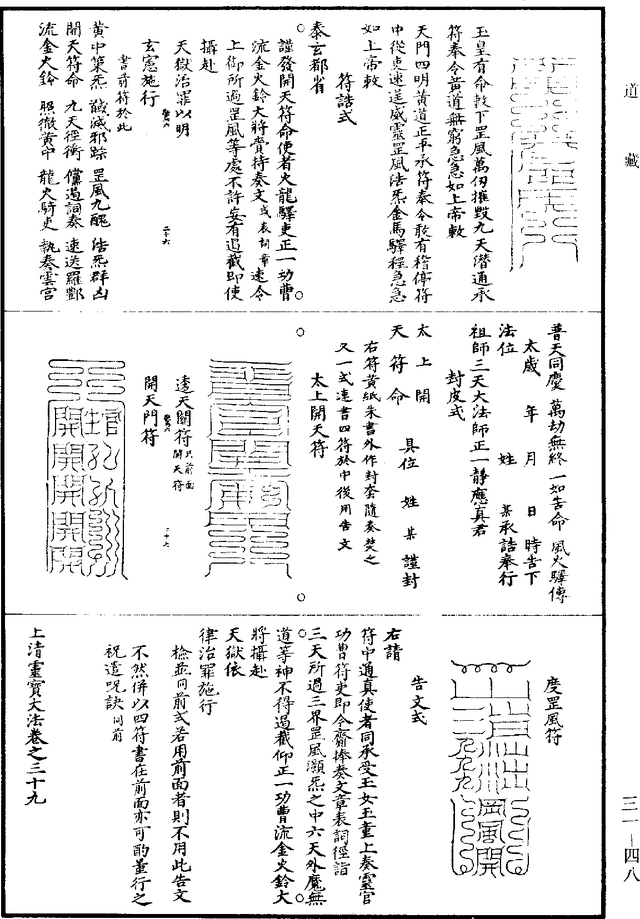 道藏
玉皇有命敕下罡風萬仞摧毀九天僭通承
符奉令黄道無窮急急如上帝敕
天門四明黄道正平承符奉令敢有稽停符
中從吏速送威靈罡風浩炁金馬驛程急急
如上帝敕
符誥式
泰玄都省
謹發開天符命使者火龍驛吏正一功曹
流金火鈴大將賫持奏文或表詞章速令
上御所過罡風等處不許妄有遏截即使
攝赴
天獄治罪以明
玄憲施行
書前符於此
黄中策炁 馘滅邪蹤 罡風九醜 浩炁群凶
開天符命 九天徑衝 儻遏詞奏 速送羅酆
流金火鈴 照徹黄中 龍火騎吏 執奏雲宫
普天同慶 萬劫無終 一如告命 風火驛傳
太歲 年 月 日 時告下
法位 姓 某承誥奉行
祖師三天大法師正一靜應真君
封皮式
太上開
天符命 具位 姓 某 謹封
右符黄紙朱書外作封套隨奏焚之
又一式連書四符於中後用告文
太上開天符
透天關符只前面開天符
開天門符
度罡風符
告文式
右請
符中通真使者同承受玉女玉童上奏靈官
功曹符吏即令齎捧奏文章表詞徑詣
三天所過三界罡風灝炁之中六天外魔無
道等神不得遏截仰正一功曹流金火鈴大
將攝赴
天獄依
律治罪施行
檢並同前式若用前面者則不用此告文
不然併以四符書在前面亦可酌量行之
祝遣呪訣同前
上清靈寶大法卷之三十九
三一-四八